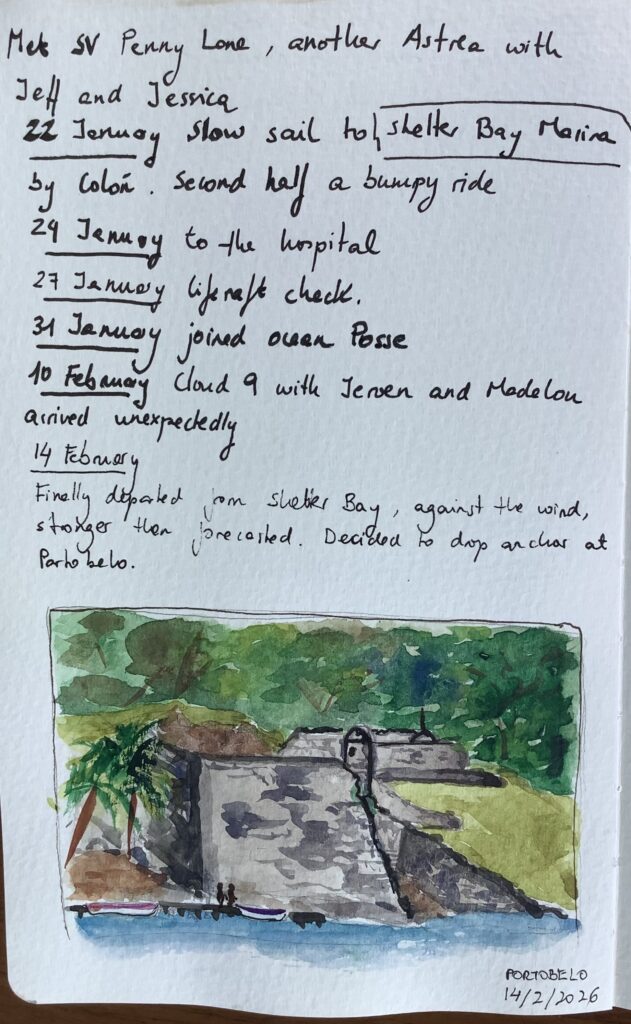 Met SV Penny Lane, another Astrea with
Jeff and Jessica
22 January slow sail to Shelter Bay Marina
by Colón. Second half a bumpy ride
24 January to the hospital
27 January liferaft check.
31 January joined ocean Posse
10 February Cloud 9 with Jeroen and Madelou
arrived unexpectedly
14 February
Finally departed from Shelter Bay, against the wind,
stronger then forecasted. Decided to drop anchor at
Portobelo.
PORTOBELO
14/2/2026